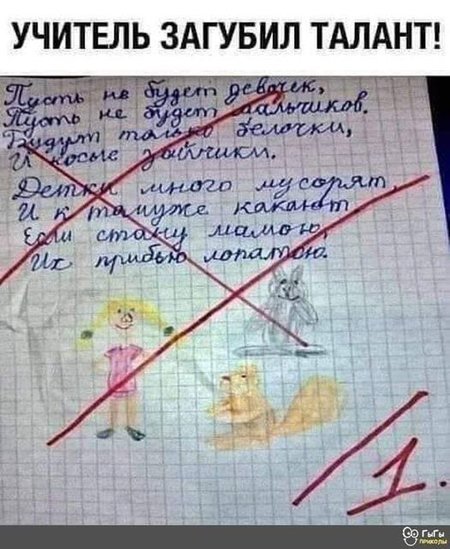 УЧИТЕЛЬ ЗАГУБИЛ ТАЛАНТ!
Пусть не будет девочек,
Пусть не будет мальчиков.
Будут только белочки,
И косые зайчики.
Детки много мусорят
И к тамуже какают
Если стану мамою,
Их прибью лопатою.
1.
ГыГы
приколы